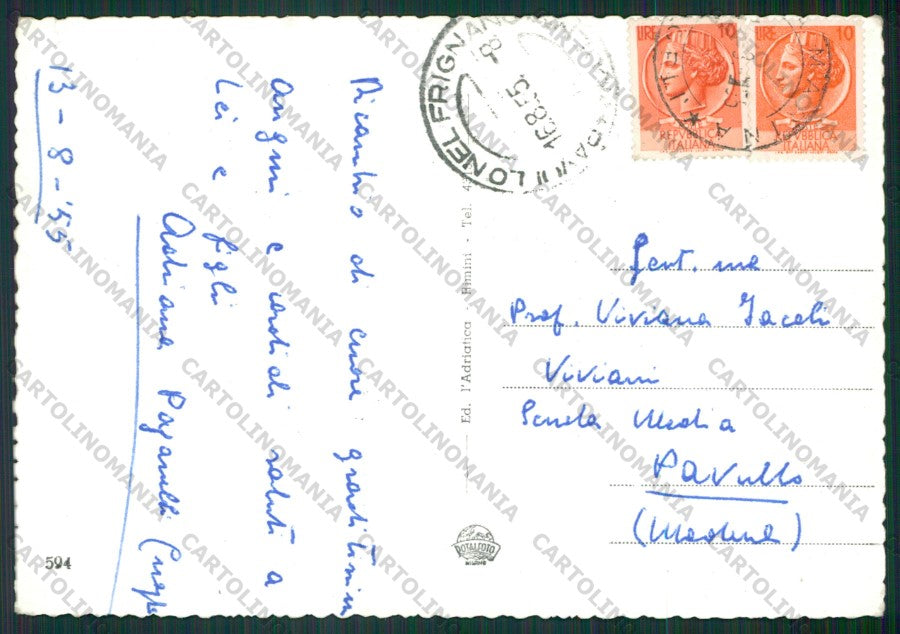 13-8-'55
Ricambio di cuore i graditissimi
auguri e cordiali saluti a
Lei e figli
Adriana Paganelli
Gent.ma
Prof. Viviana Jacoli
Viviani
Scuola Media
Pavullo
(Modena)
LIRE 10
REPVBBLICA
ITALIANA
LIRE 10
REPVBBLICA
ITALIANA
PAVULLO NEL FRIGNANO
16.8.55
Ed. l'Adriatica - Rimini - Tel.
ROTALFOTO
MILANO
594
CARTOLINOMANIA